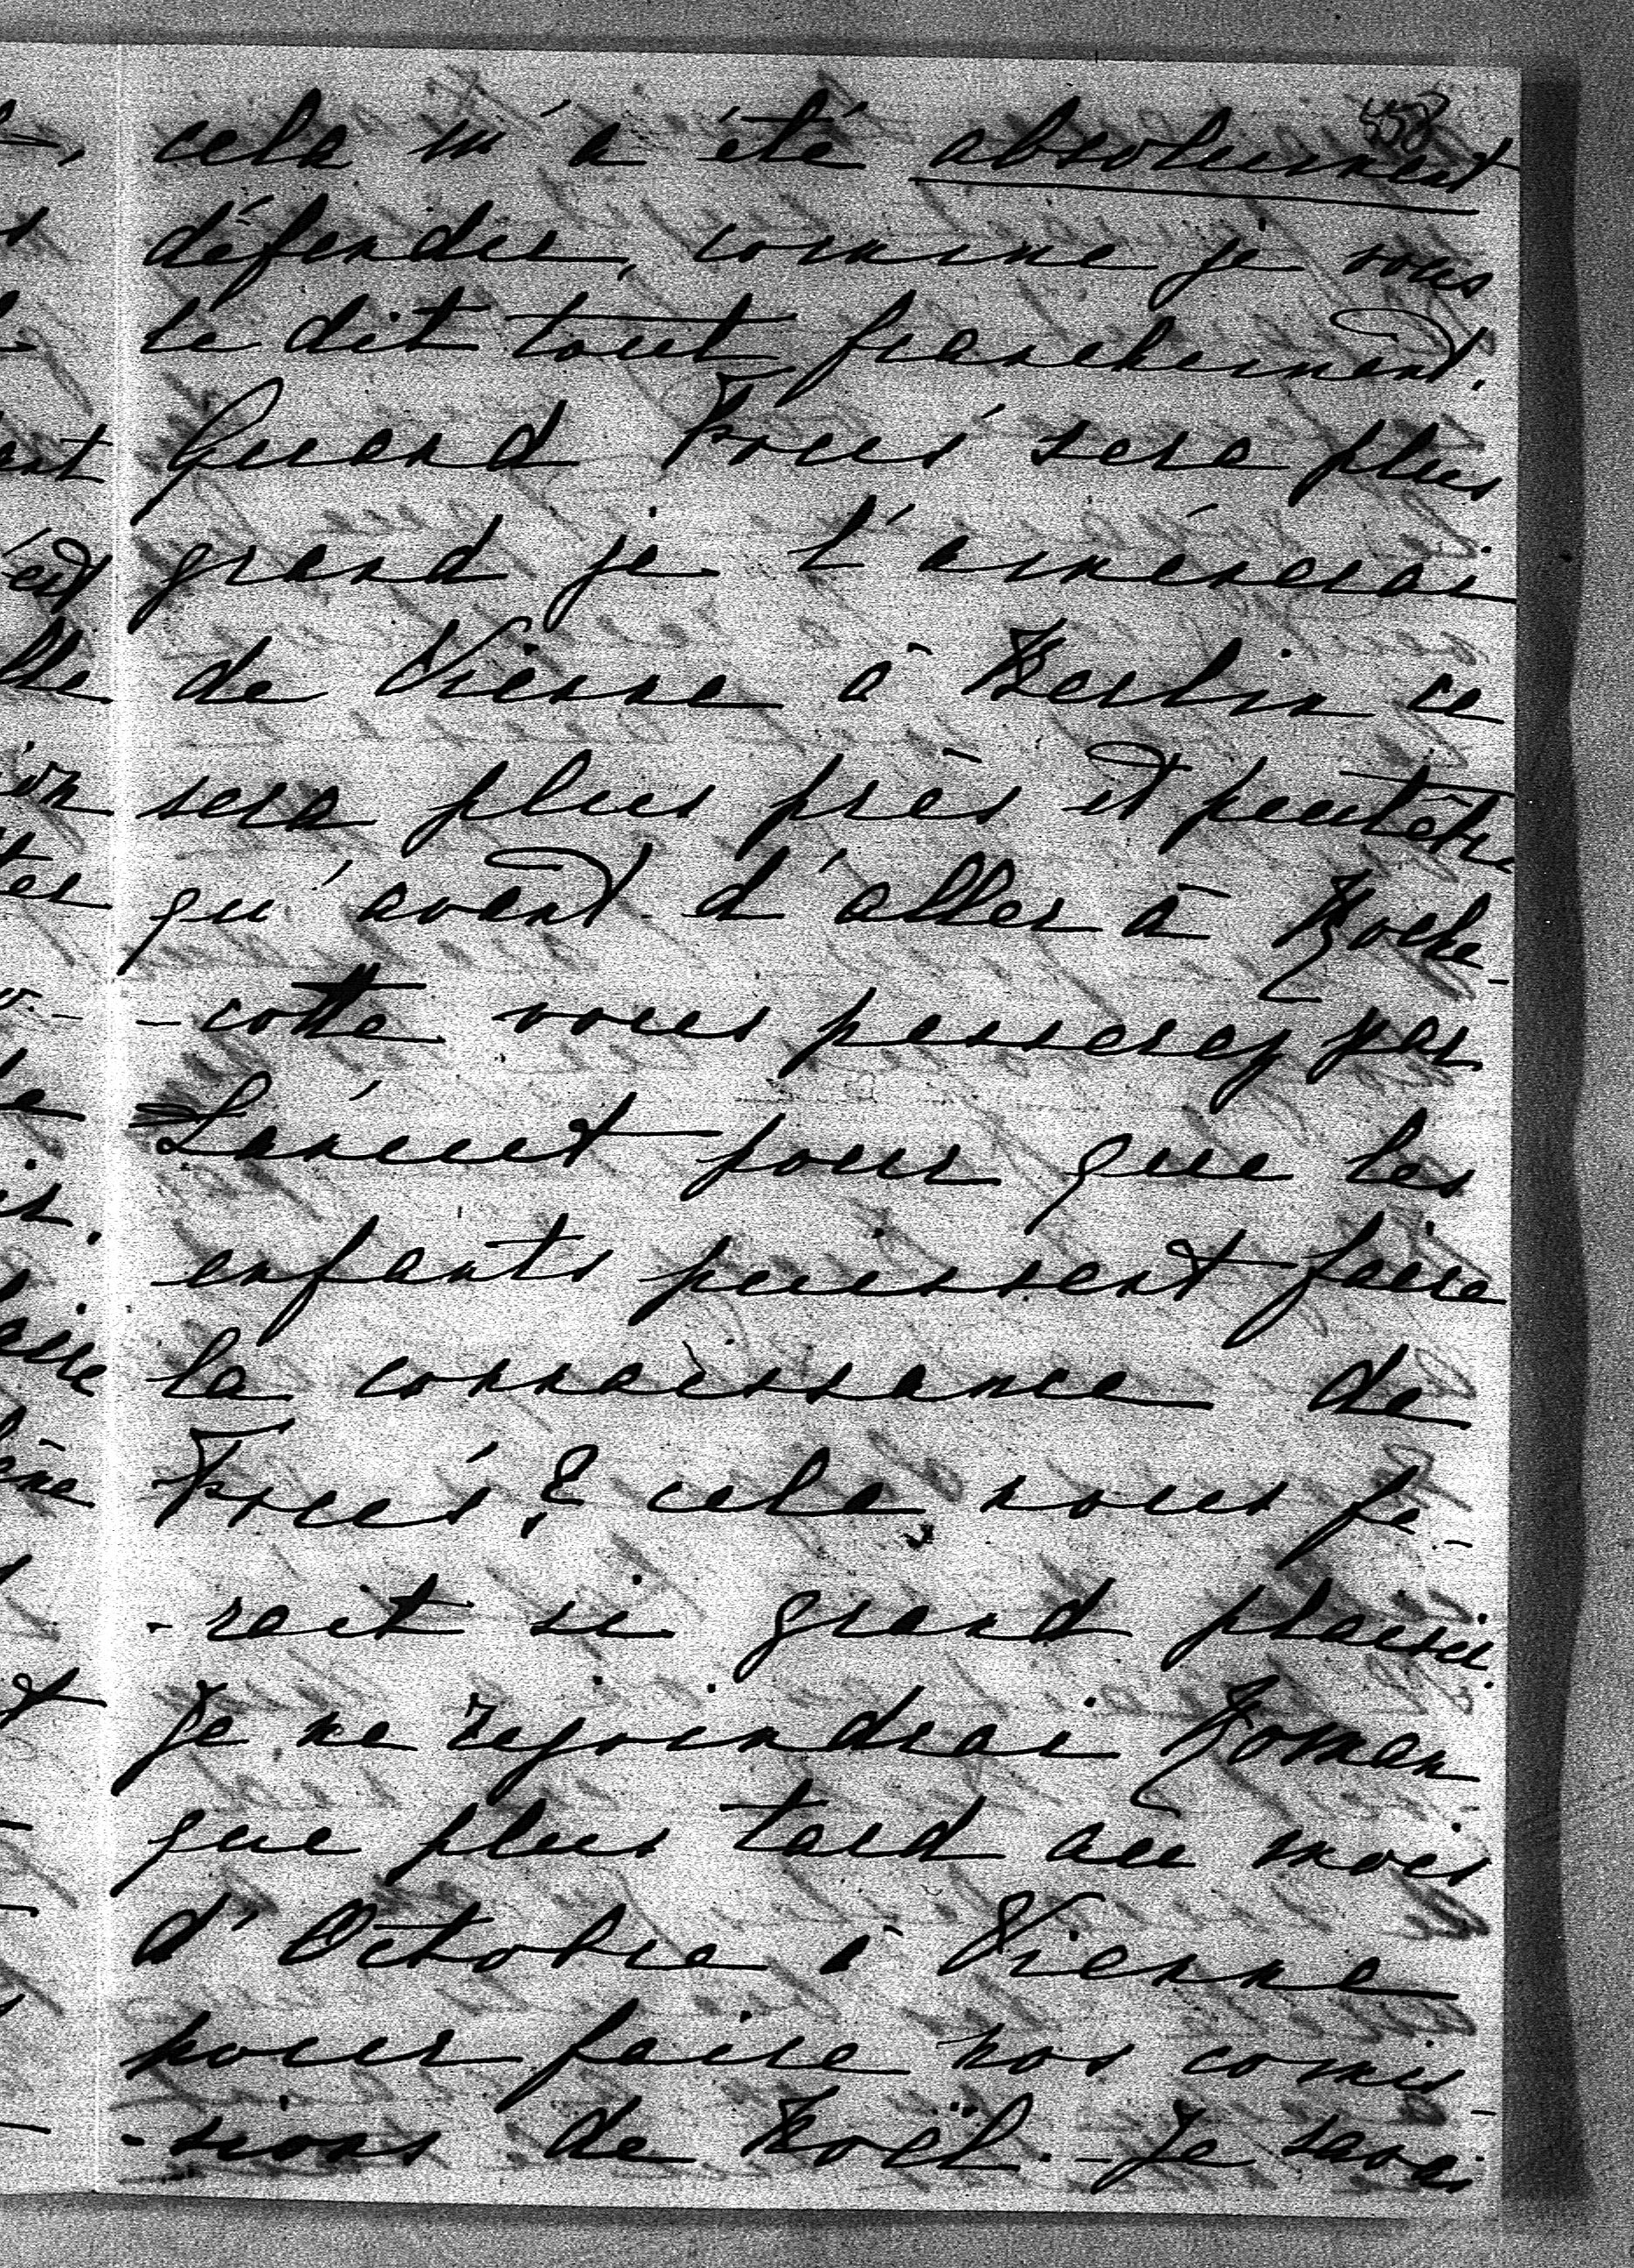 558
cela m'a été absolument
défendu, comme je vous
le dit tout franchement.
Quand sera plus
grand je l'amènerai
de Vienne à Berlin ce
sera plus près et peutêtre
qu'avant d'aller à Roche-
-cotte vous passerez par
Lancut pour que les
enfants puissent faire
la connaissance de
& cela nous fe-
-rait si grand plaisir.
Je ne rejoindrai Roman
que plus tard au mois
d'Octobre à Vienne
pour faire nos comis-
-sions de Noël. - Je